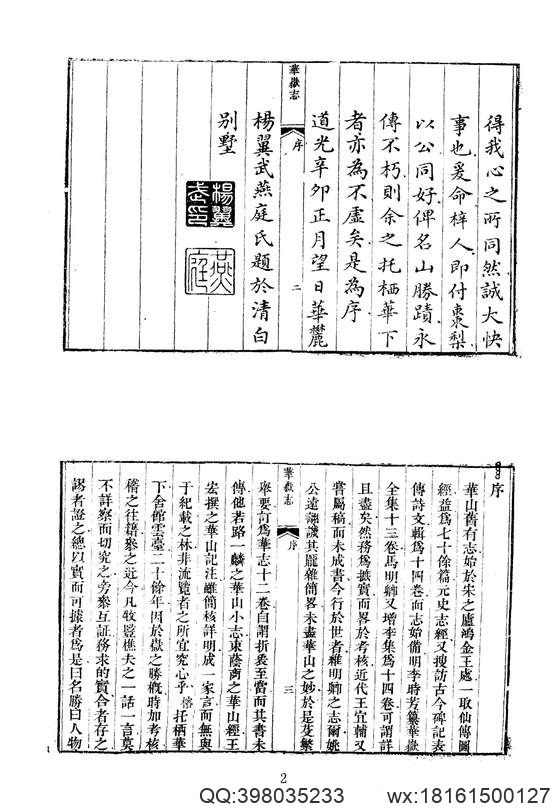 得我心之所同然誠大快
事也爰命梓人即付棗梨
以公同好俾名山勝蹟永
傳不朽則余之托栖華下
者亦為不虛矣是為序
道光辛卯正月望日華麓
華嶽志
序
二
楊翼武燕庭氏題於清白
別墅
楊翼武印
燕庭
序
華山舊有志始於宋之盧鴻金王處一取仙傳圖
經益爲七十餘篇元史志經又搜訪古今碑記表
傳詩文輯爲十四卷而志始備明李時芳纂華嶽
全集十三卷馬明卿又增李集爲十四卷可謂詳
且盡矣然務爲摭實而畧於考核近代王宜輔又
嘗屬稿而未成書今行於世者維明卿之志爾姚
公遠翮議其龐雜簡畧未盡華山之妙於是芟繁
華嶽志
序
三
舉要訂爲華志十二卷自謂折衷至當而其書未
傳他若路一麟之華山小志東蔭商之華山經王
宏撰之華山記注雖簡核詳明成一家言而無與
于紀載之林非流覽者之所宜究心乎榕托栖華
下舍館雲臺二十餘年因於嶽之勝概時加考核
稽之往籍叅之近今凡牧豎樵夫之一話一言莫
不詳察而切究之旁叅互証務求的實合者存之
謬者證之總以實而可據者爲是曰名勝曰人物
2
QQ:398035233
wx:18161500127